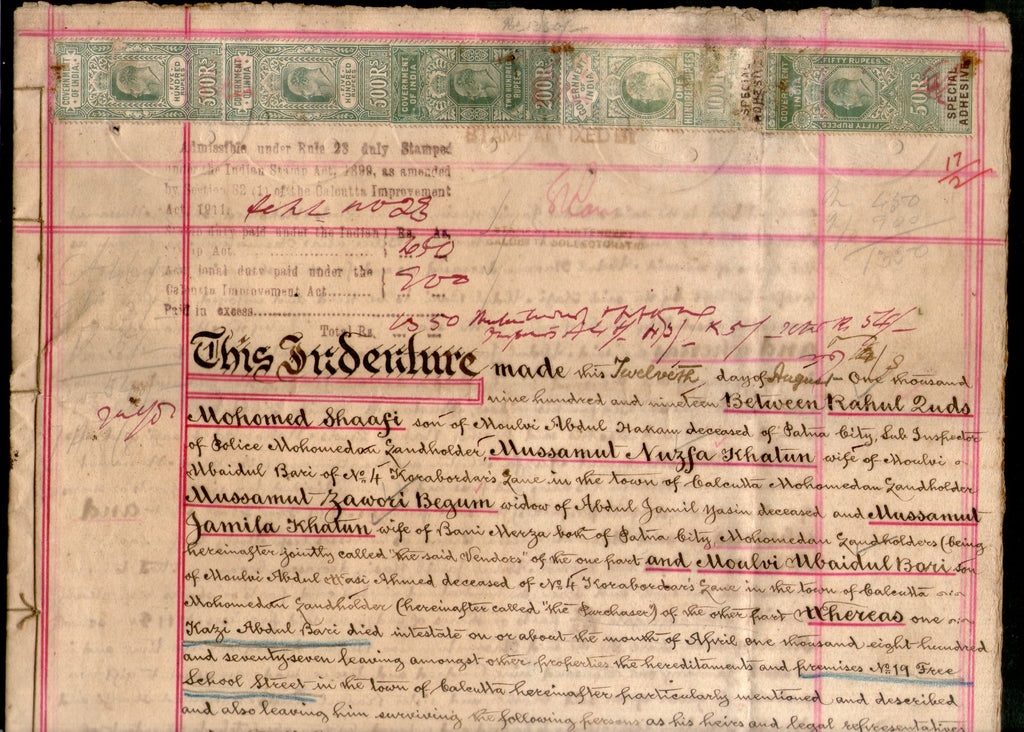 GOVERNMENT OF INDIA FIVE HUNDRED 500RS
GOVERNMENT OF INDIA FIVE HUNDRED 500RS
GOVERNMENT OF INDIA TWO HUNDRED RUPEES 200RS
100RS
GOVERNMENT INDIA FIFTY RUPEES FIFTY RUPEES 50RS SPECIAL ADHESIVE
Admissible under Rule 23 duly Stamped
under the Indian Stamp Act, 1899, as amended
by Section 82 (1) of the Calcutta Improvement
Act, 1911,
17/2
duty paid under the Indian Rs. As.
Stamp Act. 450
Additional duty paid under the 900
Calcutta Improvement Act
Paid in excess
Total Rs. 1350
This Indenture made this Twelveth day of August One thousand
nine hundred and nineteen Between Rahul Quds
Mohomed Shaafi son of Moulvi Abdul Hakam deceased of Patna City, Sub Inspector
of Police Mohomedan Landholder, Mussamut Nuzfa Khatun wife of Moulvi
Ubaidul Bari of No. 4 Korabordar's Lane in the town of Calcutta Mohomedan Landholder
Mussamut Zawori Begum widow of Abdul Jamil Yasin deceased and Mussamut
Jamila Khatun wife of Bani Merza both of Patna City, Mohomedan Landholders (being
hereinafter jointly called "the said Vendors" of the one part and Moulvi Ubaidul Bari son
of Moulvi Abdul Wasi Ahmed deceased of No. 4 Korabordar's Lane in the town of Calcutta
Mohomedan Landholder (hereinafter called "the Purchaser") of the other part Whereas one
Kazi Abdul Bari died intestate on or about the month of April one thousand eight hundred
and seventy seven leaving amongst other properties the hereditaments and premises No. 19 Free
School Street in the town of Calcutta hereinafter particularly mentioned and described
and also leaving him surviving the following persons as his heirs and legal representatives